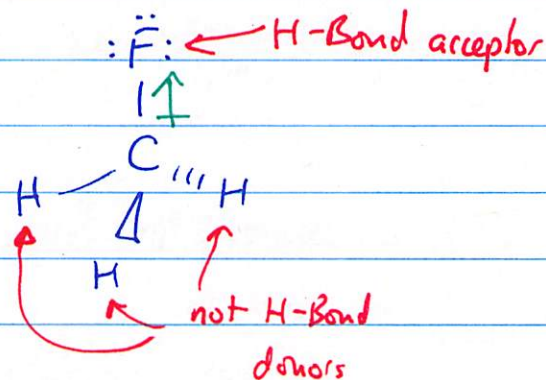 :F̈: H-Bond acceptor
C
H H
H
not H-Bond
donors